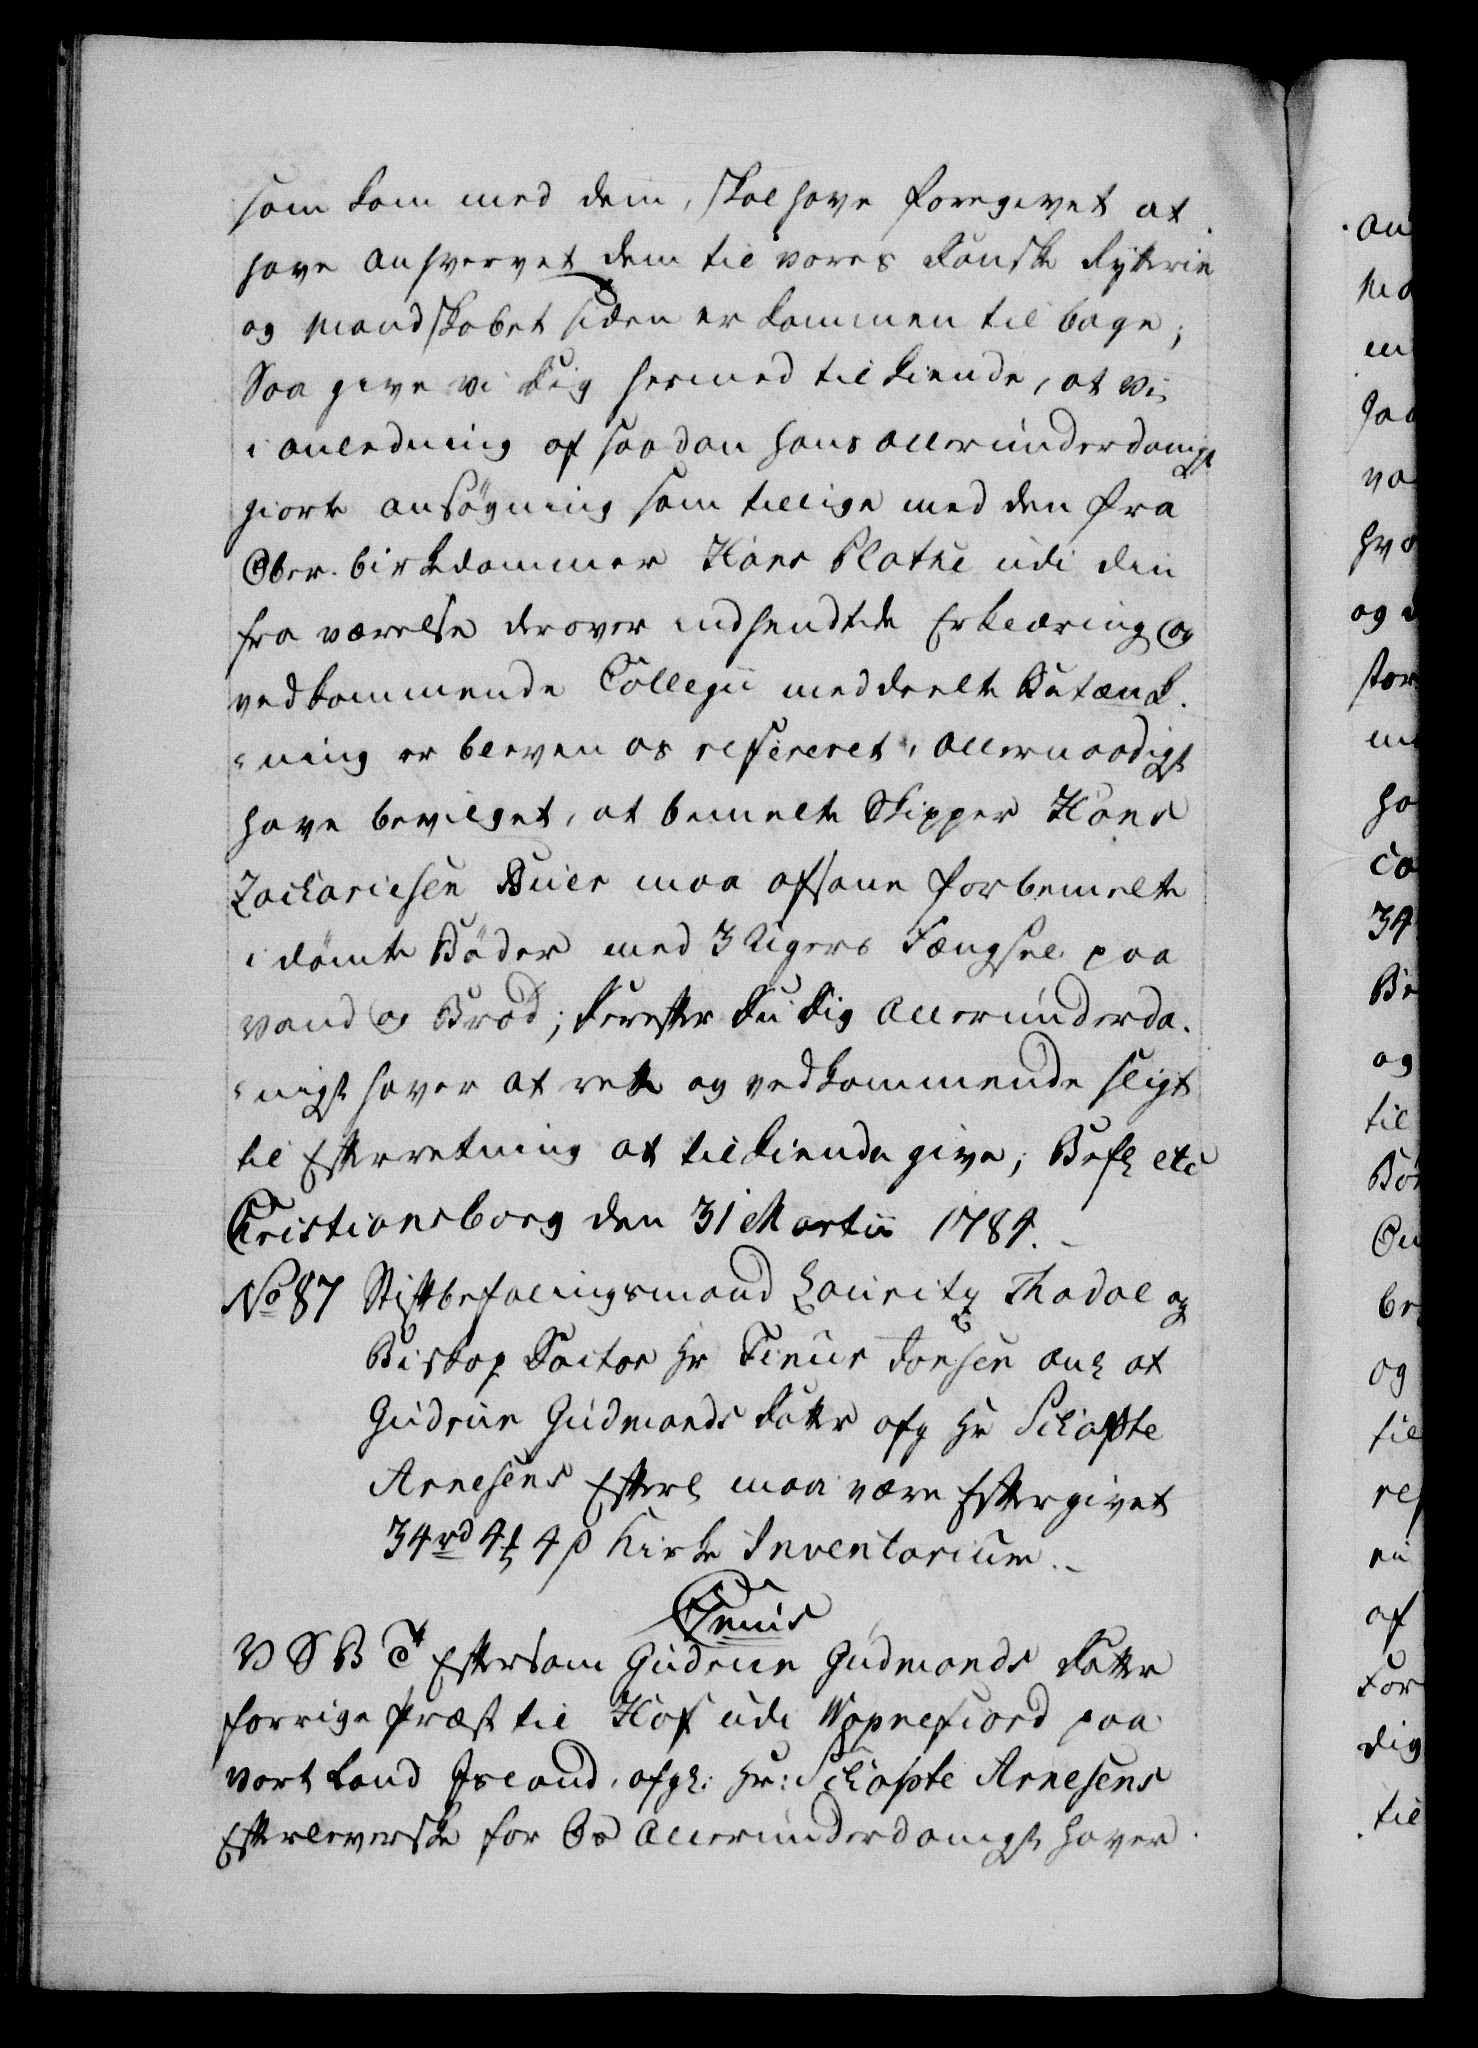 som kom med dem, skal have foregivet at
have anhvervet dem til vores danske Rytterie
og Mandskabet siden er kommen til bage;
Saa give vi dig hermed tilkiende, at vi
i anledning af saadan hans allerunderdanigst
giorte ansøgning som tillige med den fra
Ober-birkdommer Hans Plathe udi din
fra værelse derover indsendte Erklæring og
vedkommende Collegii meddeelte Betænk-
-ning er bleven os refereret, allernaadigst
have bevilget, at bemelte Skipper Hans
Zachariesen Buer maa afsone forbemelte
i dømte Bøder med 3 Ugers Fængsel paa
vand og Brød; Derefter du dig allerunderda-
-nigst haver at rette og vedkommende sligt
til Efterretning at tilkiende give; Befl etc
Christiansborg den 31 Martii 1784.
No 87 Stiftbefalingsmand Lauritz Thodal og
Biskop Doctor Hr Finur Jonsen anl at
Gudrun Gudmands datter afg Hr Skapte
Arnesens Efterl maa være Eftergivet
34 rd 4 ß Kirke Inventarium.
V S B T Eftersom Gudrun Gudmands datter
forrige Præst til Hof udi Wopnefiord paa
vort Land Island, afgl: Hr: Skapte Arnesens
Efterleverske for Os allerunderdanigst haver